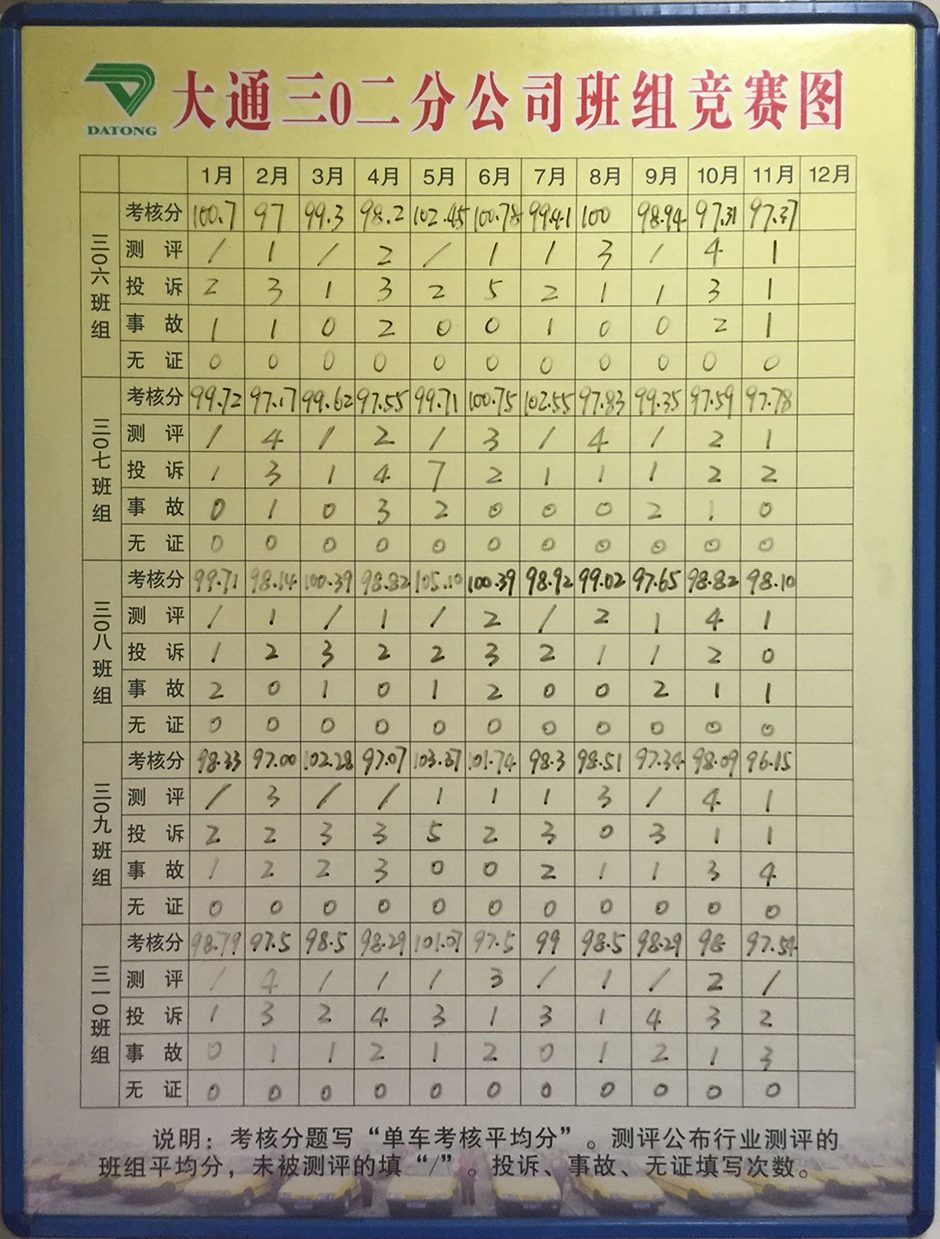 大通三0二分公司班组竞赛图
DATONG
1月 2月 3月 4月 5月 6月 7月 8月 9月 10月 11月 12月
三0六班组
考核分 100.7 97 99.3 98.2 102.45 100.78 99.41 100 98.94 97.31 97.37
测评 / 1 / 2 / 1 1 3 / 4 1
投诉 2 3 1 3 2 5 2 1 1 3 1
事故 1 1 0 2 0 0 1 0 0 2 1
无证 0 0 0 0 0 0 0 0 0 0 0
三0七班组
考核分 99.72 97.17 99.62 97.55 99.71 100.75 102.55 97.83 99.35 97.59 97.78
测评 / 4 / 2 / 3 / 4 / 2 1
投诉 1 3 1 4 7 2 1 1 1 2 2
事故 0 1 0 3 2 0 0 0 2 1 0
无证 0 0 0 0 0 0 0 0 0 0 0
三0八班组
考核分 99.71 98.14 100.39 98.82 105.10 100.39 98.92 99.02 97.65 98.82 98.10
测评 / 1 / 1 / 2 / 2 1 4 1
投诉 1 2 3 2 2 3 2 1 1 2 0
事故 2 0 1 0 1 2 0 0 2 1 1
无证 0 0 0 0 0 0 0 0 0 0 0
三0九班组
考核分 98.33 97.00 102.28 97.07 103.87 101.74 98.3 98.51 97.34 98.09 96.15
测评 / 3 / / 1 1 1 3 / 4 1
投诉 2 2 3 3 5 2 3 0 3 1 1
事故 1 2 2 3 0 0 2 1 1 3 4
无证 0 0 0 0 0 0 0 0 0 0 0
三一0班组
考核分 98.79 97.5 98.5 98.29 101.07 97.5 99 98.5 98.29 98 97.54
测评 / 4 / 1 / 3 / 1 / 2 /
投诉 1 3 2 4 3 1 3 1 4 3 2
事故 0 1 1 2 1 2 0 1 2 1 3
无证 0 0 0 0 0 0 0 0 0 0 0
说明：考核分题写“单车考核平均分”。测评公布行业测评的
班组平均分，未被测评的填“/”。投诉、事故、无证填写次数。